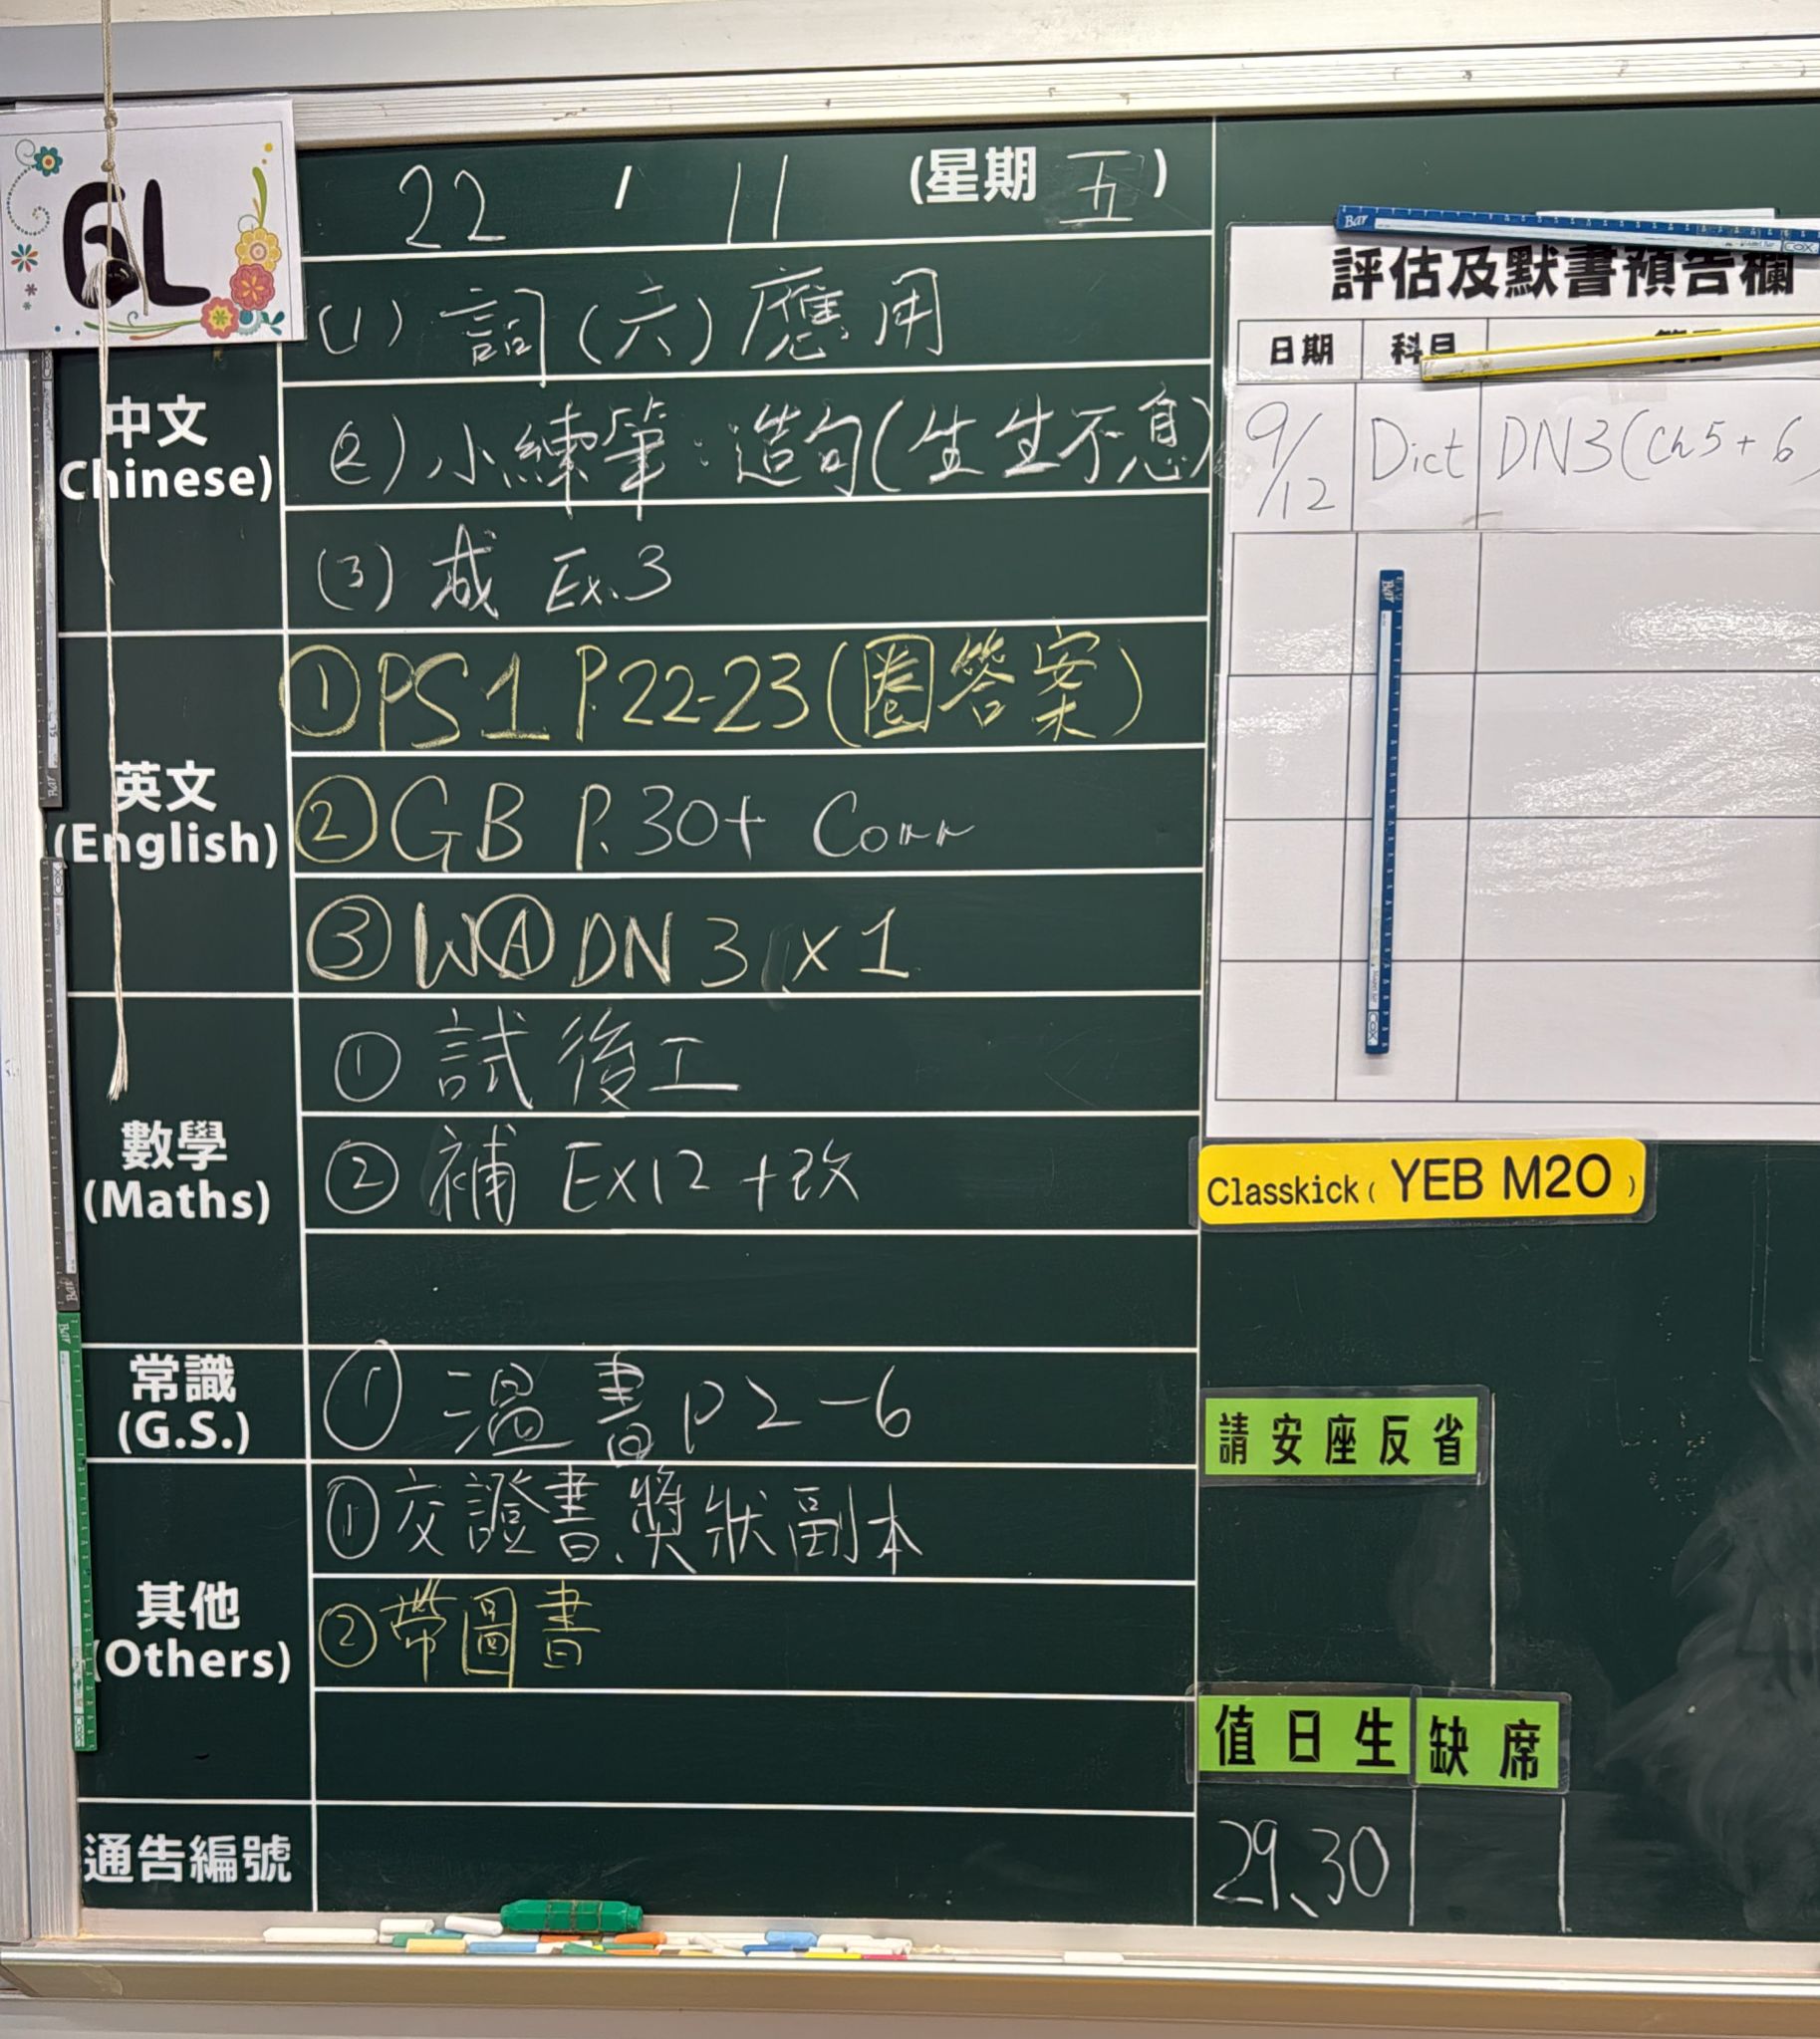 6L
22 / 11 (星期五)
中文
(Chinese)
(1) 詞(六)應用
(2) 小練筆：造句(生生不息)
(3) 成 Ex.3
英文
(English)
① PS1 P.22-23(圈答案)
② GB P.30+ Corr
③ WⒶ DN 3 x 1
數學
(Maths)
① 試後工
② 補 Ex12 +改
常識
(G.S.)
① 溫書 p2-6
其他
(Others)
① 交證書、獎狀副本
② 帶圖書
通告編號
評估及默書預告欄
日期 科目
9/12 Dict DN3(Ch5+6)
Classkick( YEB M20 )
請安座反省
值日生 缺席
29、30